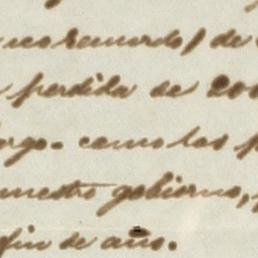 recuerdo) de
perdida de 200
argo. como las p
nuestro gobierno,
fin de año.